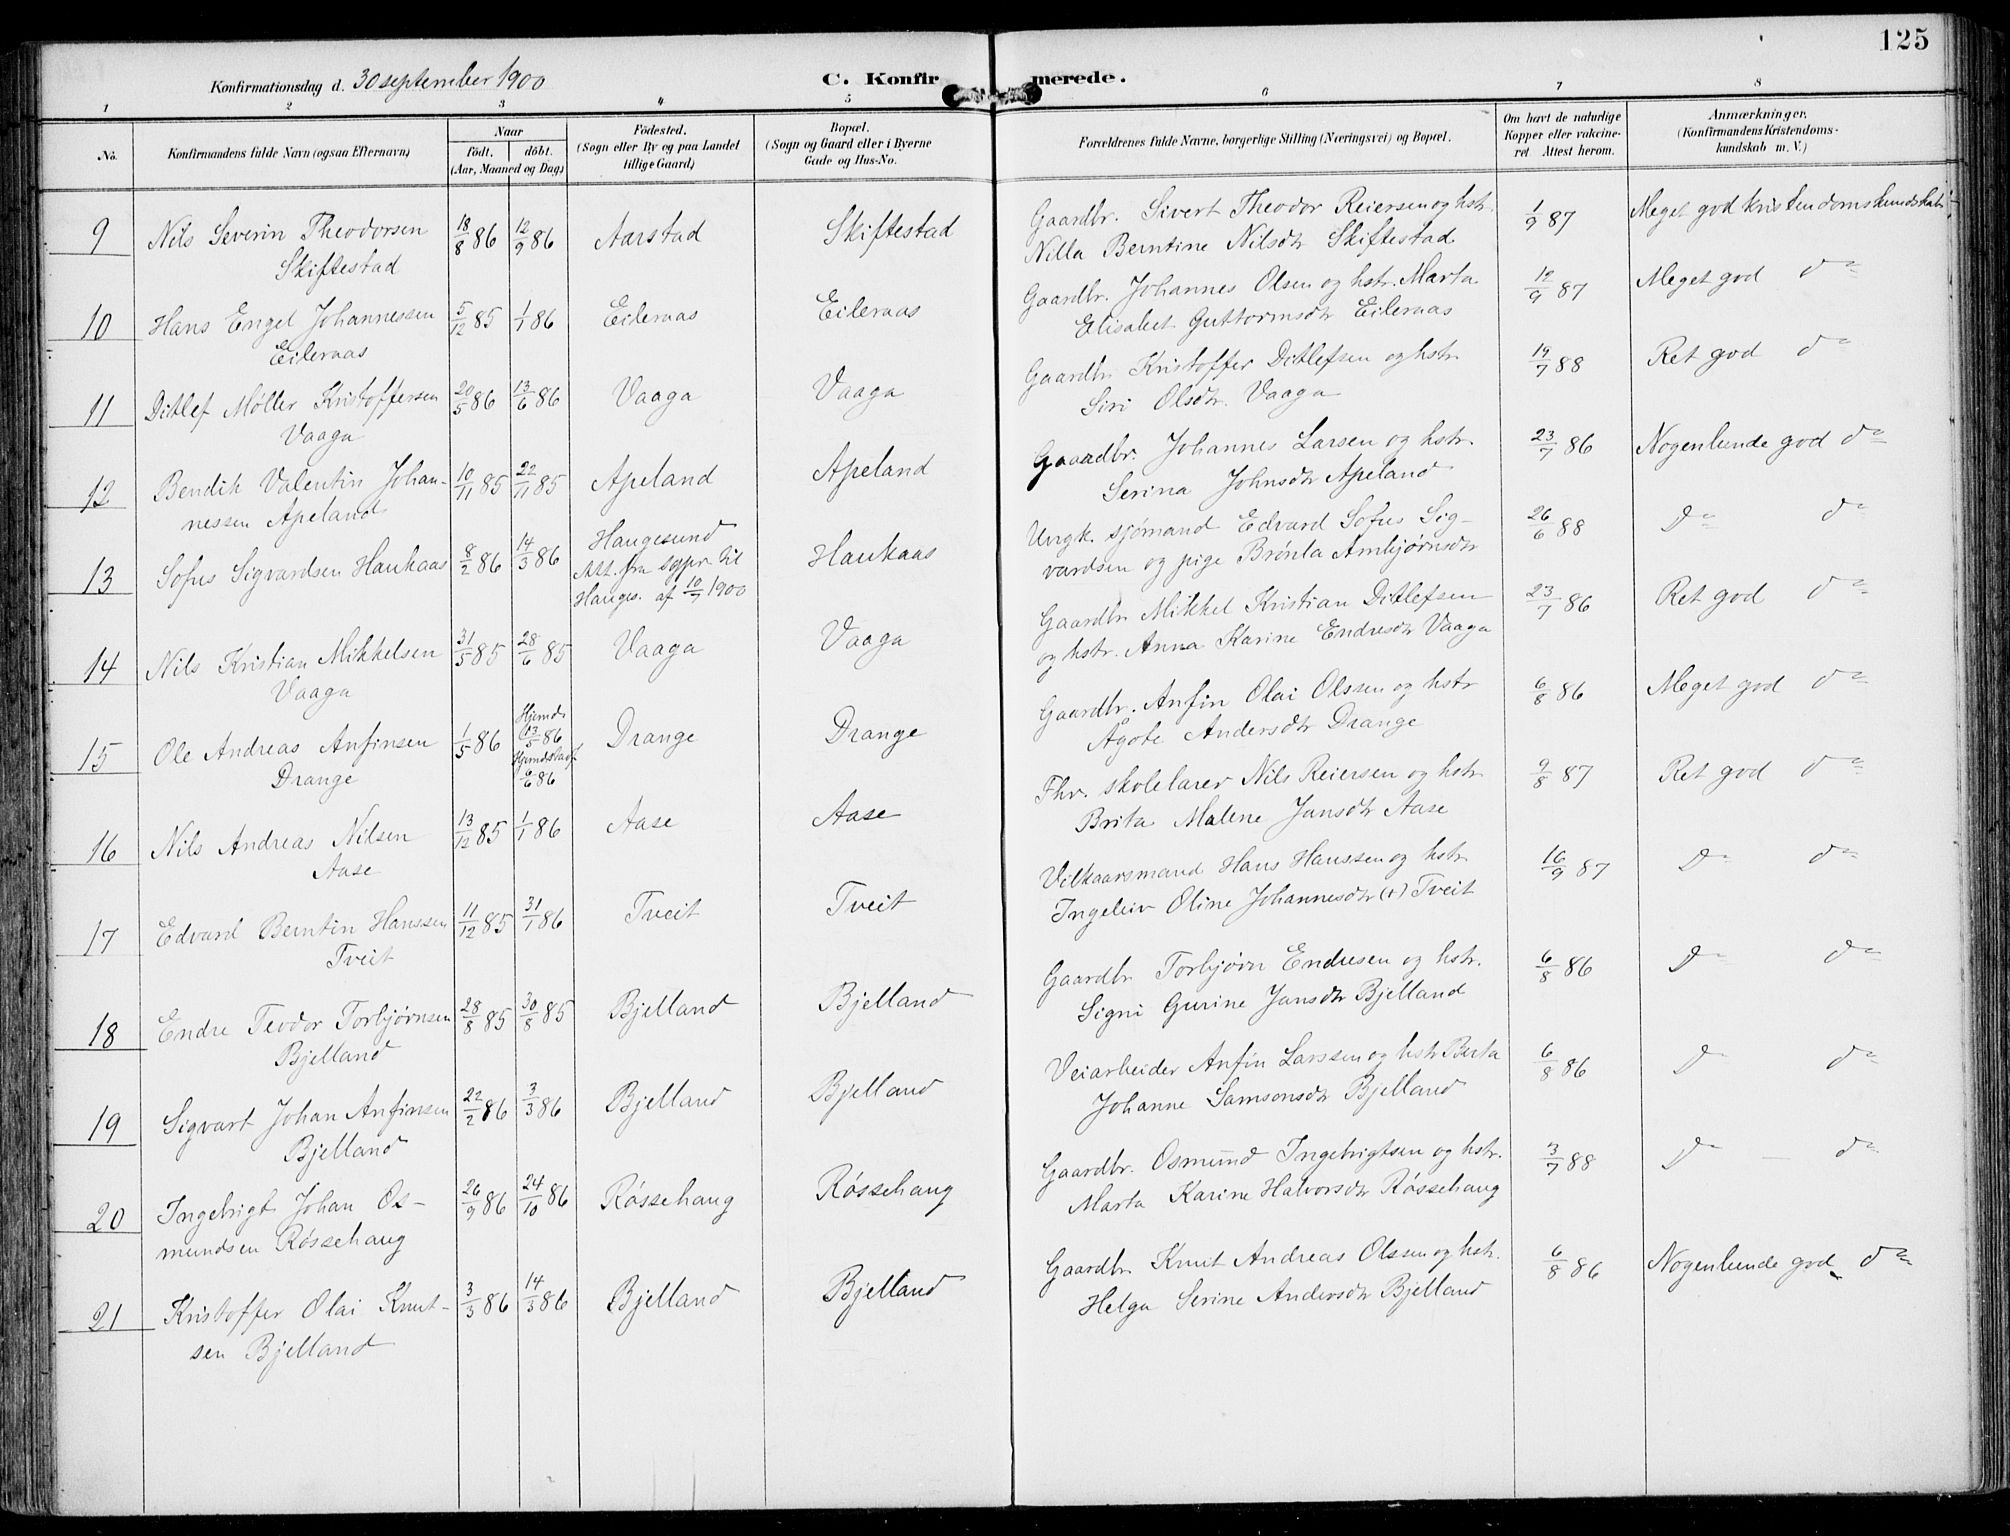 125
Konfirmationsdag d. 30 september 1900
C. Konfirmerede.
1 2 3 4 5 6 7 8
No. Konfirmandens fulde Navn (ogsaa Efternavn) Naar Födt. döbt. (Aar, Maaned og Dag) Födested. (Sogn eller By og paa Landet tillige Gaard) Bopæl. (Sogn og Gaard eller i Byerne Gade og Hus-No. Forældrenes fulde Navne, borgerlige Stilling (Næringsvei) og Bopæl. Om havt de naturlige Kopper eller vakcineret Attest herom. Anmærkninger. (Konfirmandens Kristendomskundskab m. V.)
9 Nils Severin Theodorsen 18/8 86 12/9 86 Aarstad Skiftestad Gaardbr. Sivert Theodor Reiersen og hstr. 1/9 87 Meget god kristendomskundskab
Skiftestad Nilla Berntine Nilsdtr Skiftestad
10 Hans Engel Johannessen 5/12 85 1/1 86 Eileraas Eileraas Gaardbr. Johannes Olsen og hstr. Marta 12/9 87 Meget god do
Eileraas Elisabet Guttormsdtr Eileraas
11 Ditlef Møller Kristoffersen 20/5 86 13/6 86 Vaaga Vaaga Gaardbr Kristoffer Ditlefsen og hstr. 19/7 88 Ret god do
Vaaga Siri Olsdtr. Vaaga
12 Bendik Valentin Johan- 10/11 85 22/11 85 Apeland Apeland Gaardbr. Johannes Larsen og hstr. 23/7 86 Nogenlunde god do
nessen Apeland Serina Johnsdtr Apeland
13 Sofus Sigvardsen Haukaas 8/2 86 14/3 86 Haugesund Haukaas Ungk. sjømand Edvard Sofus Sig- 26/6 88 Do do
Att. fra sgpr. til vardsen og pige Brønla Ambjørnsdtr
Hauges. af 10/7 1900
14 Nils Kristian Mikkelsen 31/5 85 28/6 85 Vaaga Vaaga Gaardbr Mikkel Kristian Ditlefsen 23/7 86 Ret god do
Vaaga og hstr. Anna Karine Endresdtr Vaaga
15 Ole Andreas Anfinsen 1/5 86 Hjemd. 13/5 86 Drange Drange Gaardbr. Anfin Olai Olssen og hstr 6/8 86 Meget god do
Drange Hjemdstadf. 6/6 86 Ågote Andersdtr Drange
16 Nils Andreas Nilsen 13/12 85 1/1 86 Aase Aase Fhv. skolelærer Nils Reiersen og hstr 9/8 87 Ret god do
Aase Brita Malene Jansdtr Aase
17 Edvard Berntin Hanssen 11/12 85 31/1 86 Tveit Tveit Vilkaarsmand Hans Hanssen og hstr. 16/9 87 Do do
Tveit Ingeleiv Oline Johannesdtr (+) Tveit
18 Endre Teodor Torbjørnsen 28/8 85 30/8 85 Bjelland Bjelland Gaardbr Torbjørn Endresen og hstr. 6/8 86 Do do
Bjelland Signi Gurine Jansdtr Bjelland
19 Sigvart Johan Anfinsen 22/2 86 3/3 86 Bjelland Bjelland Veiarbeider Anfin Larssen og hstr Berta 6/8 86 Do do
Bjelland Johanne Samsonsdtr Bjelland
20 Ingebrigt Johan Os- 26/9 86 24/10 86 Røssehaug Røssehaug Gaardbr. Osmund Ingebrigtsen og hstr. 3/7 88 Do - do
mundsen Røssehaug Marta Karine Halvorsdtr Røssehaug
21 Kristoffer Olai Knut- 3/3 86 14/3 86 Bjelland Bjelland Gaardbr. Knut Andreas Olssen og hstr. 6/8 86 Nogenlunde god do
sen Bjelland Helga Serine Andersdtr Bjelland